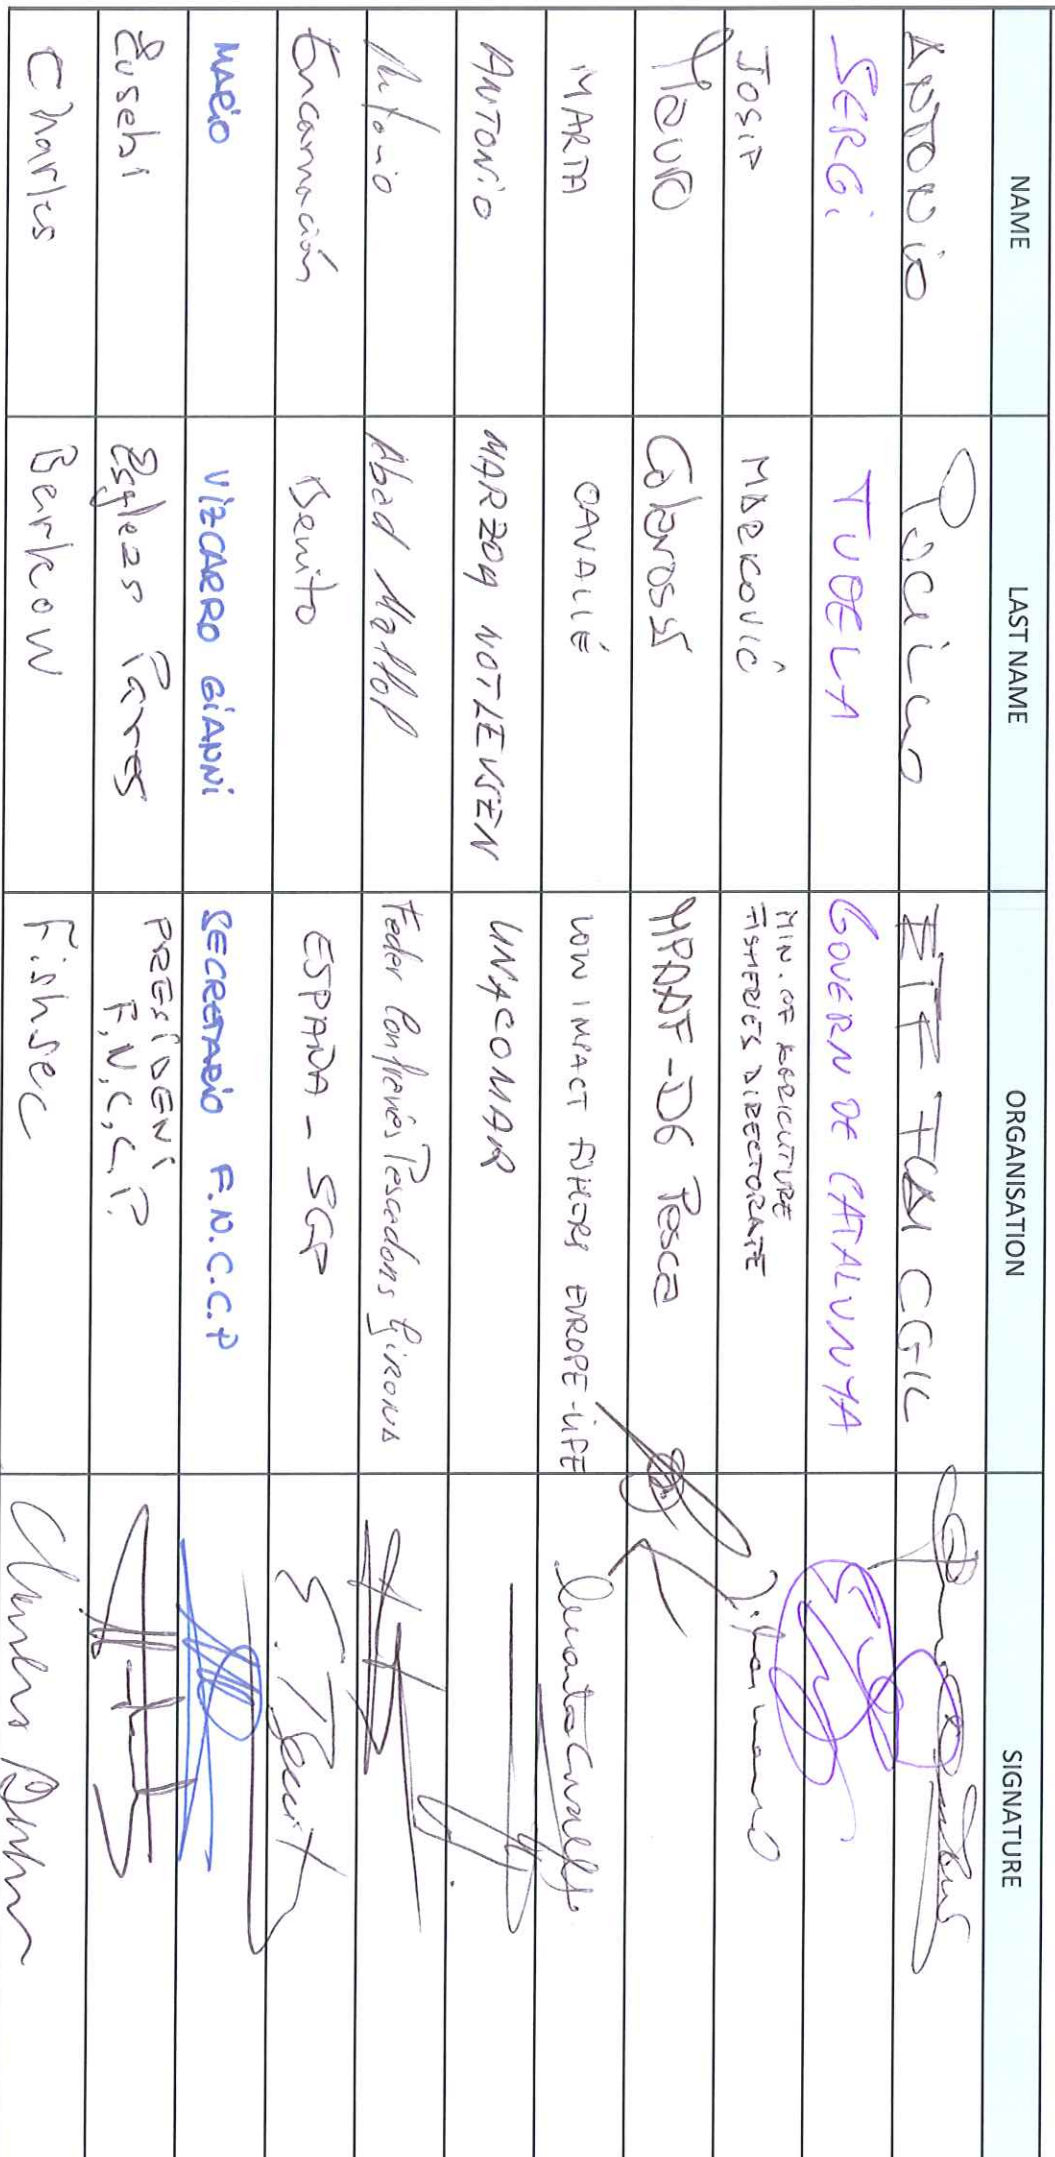 NAME LAST NAME ORGANISATION SIGNATURE
ANTONIO Pucillo ETF FLAI CGIL
SERGi TUDELA GOVERN DE CATALUNYA
JOSIP MARKOVIĆ MIN. OF AGRICULTURE
FISHERIES DIRECTORATE
Mauro Colarossi MPAAF-DG Pesca
MARTA CAVALLÉ LOW IMPACT FISHERS EUROPE-LIFE
ANTONIO MARZOA NOTLEVSEN UNACOMAR
Antonio Abad Mallol Feder Confraries Pescadors Girona
Encarnación Benito ESPAÑA - SGP E. Benito
MARIO VIZCARRO GIANNI SECRETARIO F.N.C.C.P
Eusebi Esgleas Parés PRESIDENT
F.N.C.P.
Charles Berkow Fishsec Charles Berkow